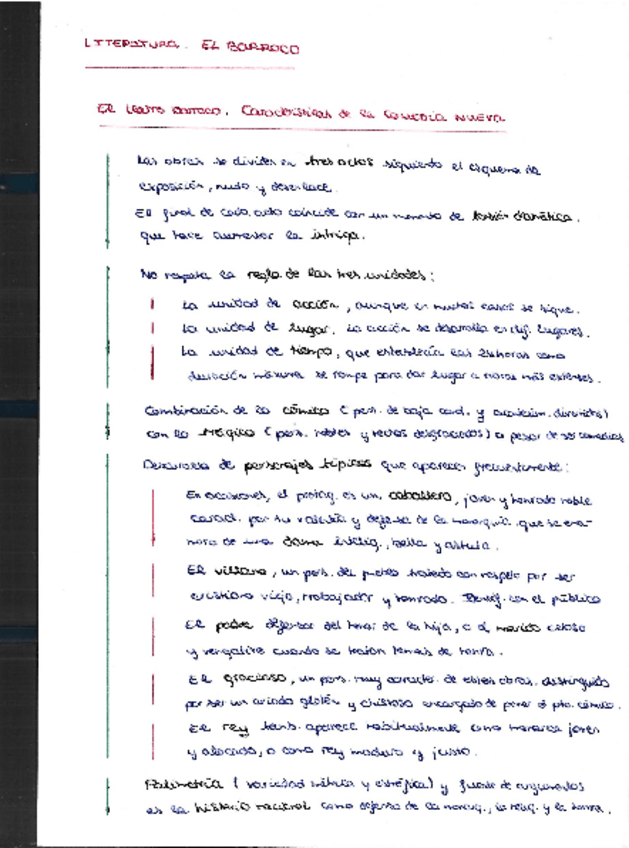 LITERATURA. EL BARROCO
El teatro barroco. Características de la comedia NUEVA
Las obras se dividen en tres actos siguiendo el esquema de
exposición, nudo y desenlace.
El final de cada acto coincide con un momento de tensión dramática,
que hace aumentar la intriga.
No respeta la regla de las tres unidades:
La unidad de acción, aunque en muchos casos se sigue.
La unidad de lugar. La acción se desarrolla en dif. lugares.
La unidad de tiempo, que establecía las 24 horas como
duración máxima se rompe para dar lugar a obras más extensas.
Combinación de lo cómico (pers. de baja cond. y divertidos)
con lo trágico (pers. nobles y hechos desgraciados) a pesar de ser comedias
Desarrollo de personajes típicos que aparecen frecuentemente:
En ocasiones, el protag. es un caballero, joven y honrado noble
caract. por su valentía y defensa de la monarquía que se ena-
mora de una dama intelig., bella y astuta.
El villano, un pers. del pueblo tratado con respeto por ser
cristiano viejo, trabajador y honrado. Identif. con el público
El padre defensor del honor de la hija, o el marido celoso
y vengativo cuando se tratan temas de honra.
El gracioso, un pers. muy caract. de estas obras, distinguido
por ser un criado glotón y chistoso encargado de poner el pto. cómico.
El rey tamb. aparece habitualmente como monarca joven
y alocado, o como rey maduro y justo.
Polimetría (variedad métrica y estrófica) y fuente de argumentos
es la historia nacional como defensa de la monarq., la relig. y la honra.